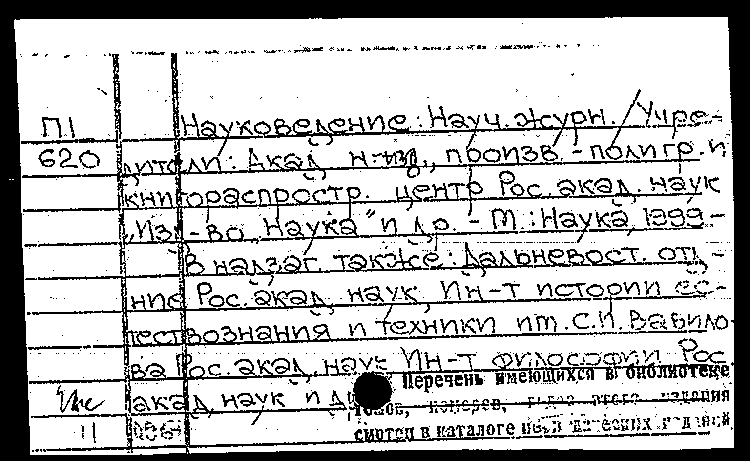 П1 Науковедение: Науч. журн. / Учре-
620 дители: Акад. н.-изд., произв.-полигр. и
книгораспростр. центр Рос. акад. наук
„Изд-во „Наука" и др. - М.: Наука, 1999-
В надзаг. также: Дальневост. отд-
ние Рос. акад. наук, Ин-т истории ес-
тествознания и техники им. С.И. Вавило-
ва Рос. акад. наук Ин-т философии Рос.
акад. наук и др.
Перечень имеющихся в библиотеке
томов, номеров, этого издания
смотри в каталоге
11